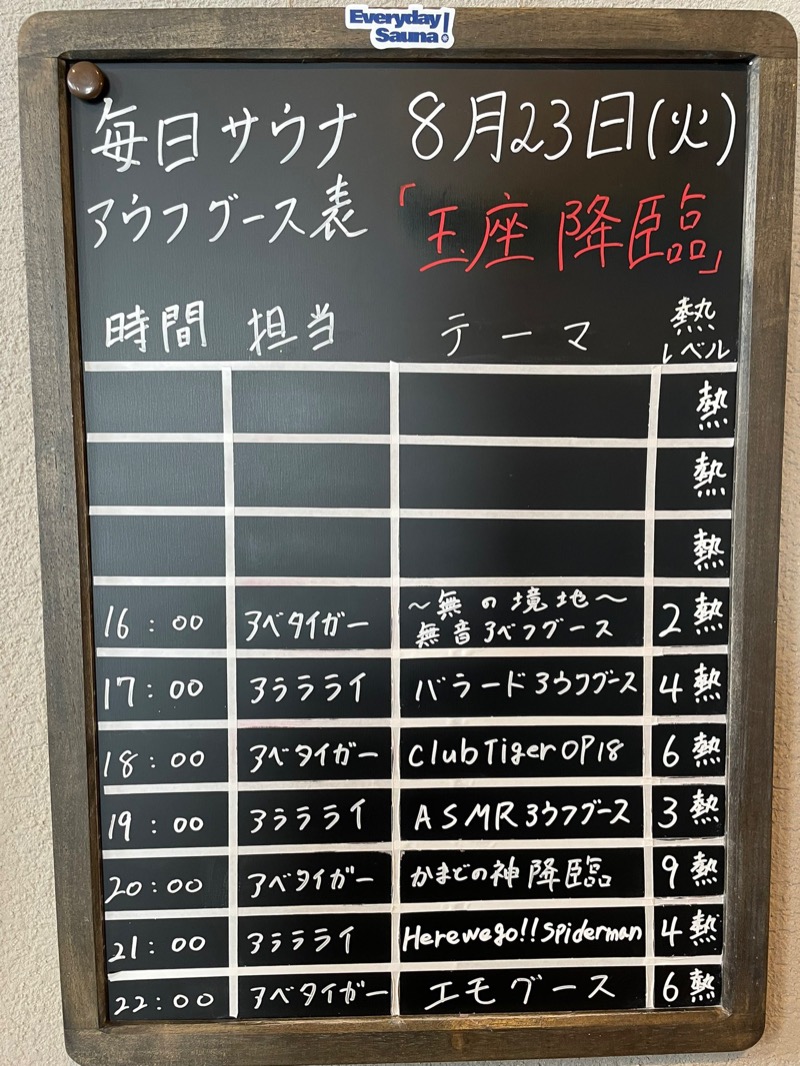 Everyday
Sauna!
毎日サウナ 8月23日(火)
アウフグース表 「玉座降臨」
時間 担当 テーマ 熱レベル
熱
熱
熱
16:00 アベタイガー 〜無の境地〜 2熱
無音アベフグース
17:00 アラララライ バラードアウフグース 4熱
18:00 アベタイガー Club Tiger OP18 6熱
19:00 アララライ ASMRアウフグース 3熱
20:00 アベタイガー かまどの神降臨 9熱
21:00 アララライ Herewego!!Spiderman 4熱
22:00 アベタイガー エモグース 6熱